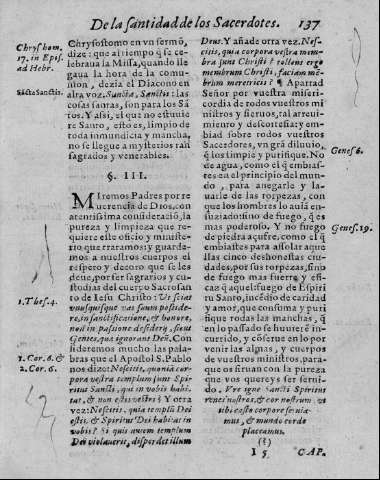 De la santidad de los Sacerdotes. 137
Chryshom.
17. in Epis.
ad Hebr.
Sācta Sanctis.
1. Thes. 4.
1. Cor. 6. &
2. Cor. 6.
Chrysostomo en vn sermō,
dize: que al tiempo q̄ se ce-
lebraua la Missa, quando lle
gaua la hora de la comu-
nion, dezia el Diacono en
alta voz. Sancta, Sanctis: las
cosas santas, son para los Sā-
tos. Y assi, el que no estuuie
re Santo, esto es, limpio de
toda inmundicia y mancha,
no se llegue a mysterios tan
sagrados y venerables.
§. III.
MIremos Padres por re
uerencia de Dios, con
atentissima consideraciō, la
pureza y limpieza que re-
quiere este oficio y ministe-
rio que tratamos; y guarde-
mos a nuestros cuerpos el
respeto y decoro que se les
deue, por ser sagrarios y cu-
stodias del cuerpo Sacrosan-
to de Iesu Christo: Vt sciat
vnusquisque vas suum posside-
re, in sanctificatione, & honore,
non in passione desiderij, sicut
Gentes, quæ ignorant Deū. Con
sideremos mucho las pala-
bras que el Apostol S. Pablo
nos dize: Nescitis, quoniā cor-
pora vestra templum sunt Spi-
ritus Sancti, qui in vobis habi-
tat, & non estis vestri? Y otra
vez: Nescitis, quia templū Dei
estis, & Spiritus Dei habitat in
vobis? Si quis autem templum
Dei violauerit, disperdet illum
Deus. Y añade otra vez. Nes-
citis, quia corpora vestra mem-
bra sunt Christi? tollens ergo
membrum Christi, faciam mē-
brum meretricis? ¶ Apartad
Señor por vuestra miseri
cordia de todos vuestros mi
nistros y sieruos, tal atreui-
miento y descortesia: y em-
biad sobre todos vuestros
Sacerdotes, vn grā diluuio,
q̄ los limpie y purifique. No
de agua, como el q̄ embias-
tes en el principio del mun-
do, para anegarle y la-
uarle de las torpezas, con
que los hombres lo auiā en-
suziado: sino de fuego, q̄ es
mas poderoso. Y no fuego
de piedra açufre, como el q̄
embiastes para assolar aque
llas cinco deshonestas ciu-
dades, por sus torpezas, sino
de fuego mas fuerte, y efi-
caz q̄ aquel: fuego de Espiri
tu Santo, incēdio de caridad
y amor, que consuma y puri
fique todas las manchas, q̄
en lo passado se huuierē in-
currido, y cōserue en lo por
venir las almas, y cuerpos
de vuestros ministros, para-
que os siruan con la pureza
que vos quereys ser serui-
do. Vre igne Sancti Spiritus
renes nostros, & cor nostrum: vt
tibi casto corpore seruia-
mus, & mundo corde
placeamus.
(§)
I 5 CAP.
Genes 6.
Genes. 19.